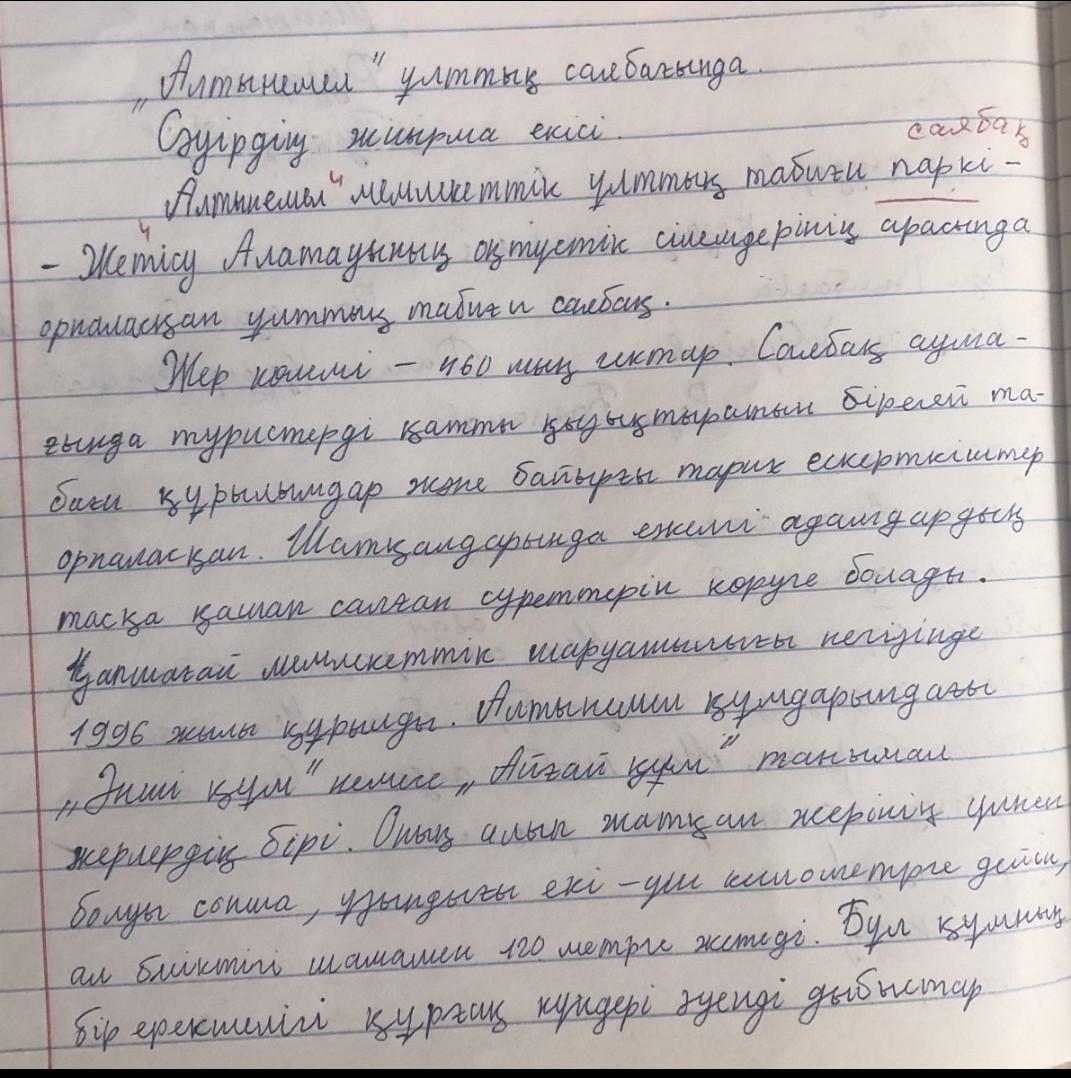 „Алтынемел" ұлттық саябағында.
Сәуірдің жиырма екісі.
саябақ
Алтынемел" мемлекеттік ұлттық табиғи паркі –
– Жетісу Алатауының оңтүстік сілемдерінің арасында
орналасқан ұлттық табиғи саябақ.
Жер көлемі – 460 мың гектар. Саябақ аума-
ғында туристерді қатты қызықтыратын бірегей та-
биғи құрылымдар және байырғы тарих ескерткіштер
орналасқан. Шатқалдарында ежелгі адамдардың
тасқа қашап салған суреттерін көруге болады.
Қапшағай мемлекеттік шаруашылығы негізінде
1996 жылы құрылды. Алтынемел құмдарындағы
„Әнші құм" немесе „Айғай құм" танымал
жерлердің бірі. Оның алып жатқан жерінің үлкен
болуы сонша, ұзындығы екі – үш километрге дейін,
ал биіктігі шамамен 120 метрге жетеді. Бұл құмның
бір ерекшелігі құрғақ күндері әуенді дыбыстар